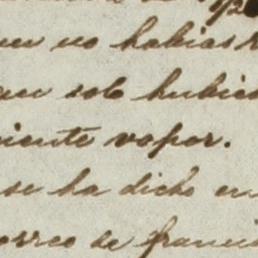 no habias
solo hubies
viente vapor.
se ha dicho en
correo de franci